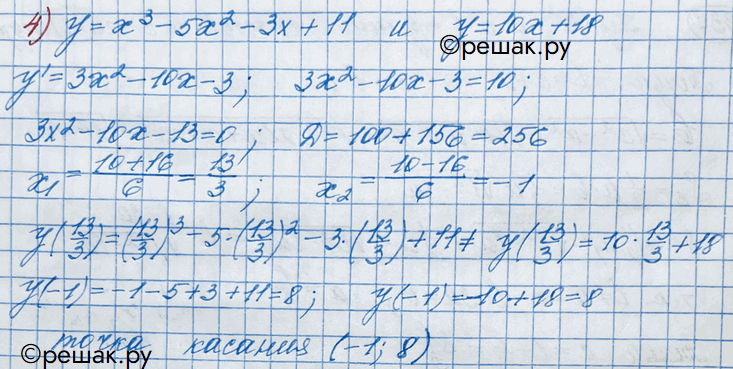 4) y = x³ - 5x² - 3x + 11 и y = 10x + 18
©решак.ру
y' = 3x² - 10x - 3; 3x² - 10x - 3 = 10;
3x² - 10x - 13 = 0; Д = 100 + 156 = 256
x₁ = (10+16)/6 = 13/3; x₂ = (10-16)/6 = -1
y(13/3) = (13/3)³ - 5·(13/3)² - 3·(13/3) + 11 ≠ y(13/3) = 10·13/3 + 18
y(-1) = -1 - 5 + 3 + 11 = 8; y(-1) = -10 + 18 = 8
точка касания (-1; 8)
©решак.ру